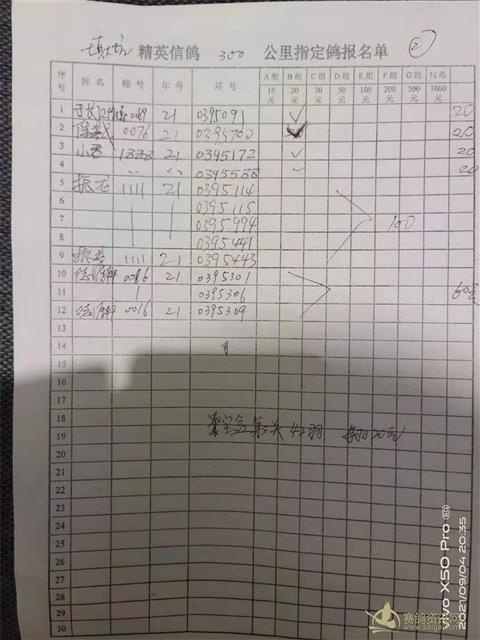 精英信鸽 300 公里指定鸽报名单 ②
序号 姓名 棚号 年号 环号 A组10元 B组20元 C组30元 D组50元 E组100元 F组200元 G组500元 H组1000元
1 0089 21 0395091 ✓ 20
2 0076 21 0395700 ✓ 20
3 1888 21 0395172 ✓ 20
4 0395588 20
5 振龙 1111 21 0395114
6 0395115
7 0395994 100
8 0395441
9 1111 21 0395443
10 0016 21 0395301
11 0395306 60元
12 0016 21 0395309
13
14
15
16
17
18 第关 42羽 每羽20元
19
20
21
22
23
24
25
26
27
28
29
30
vivo X50 Pro 5G
2021/09/04 20:35
赛鸽资讯网
www.saige.com